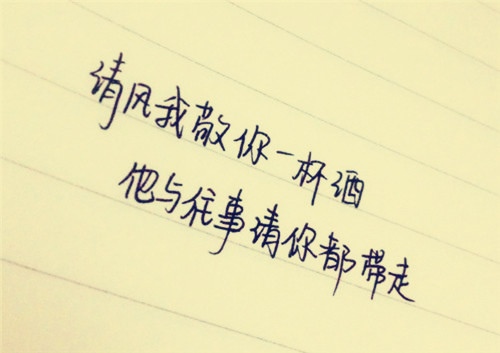 请风我敬你一杯酒
他与往事请你都带走